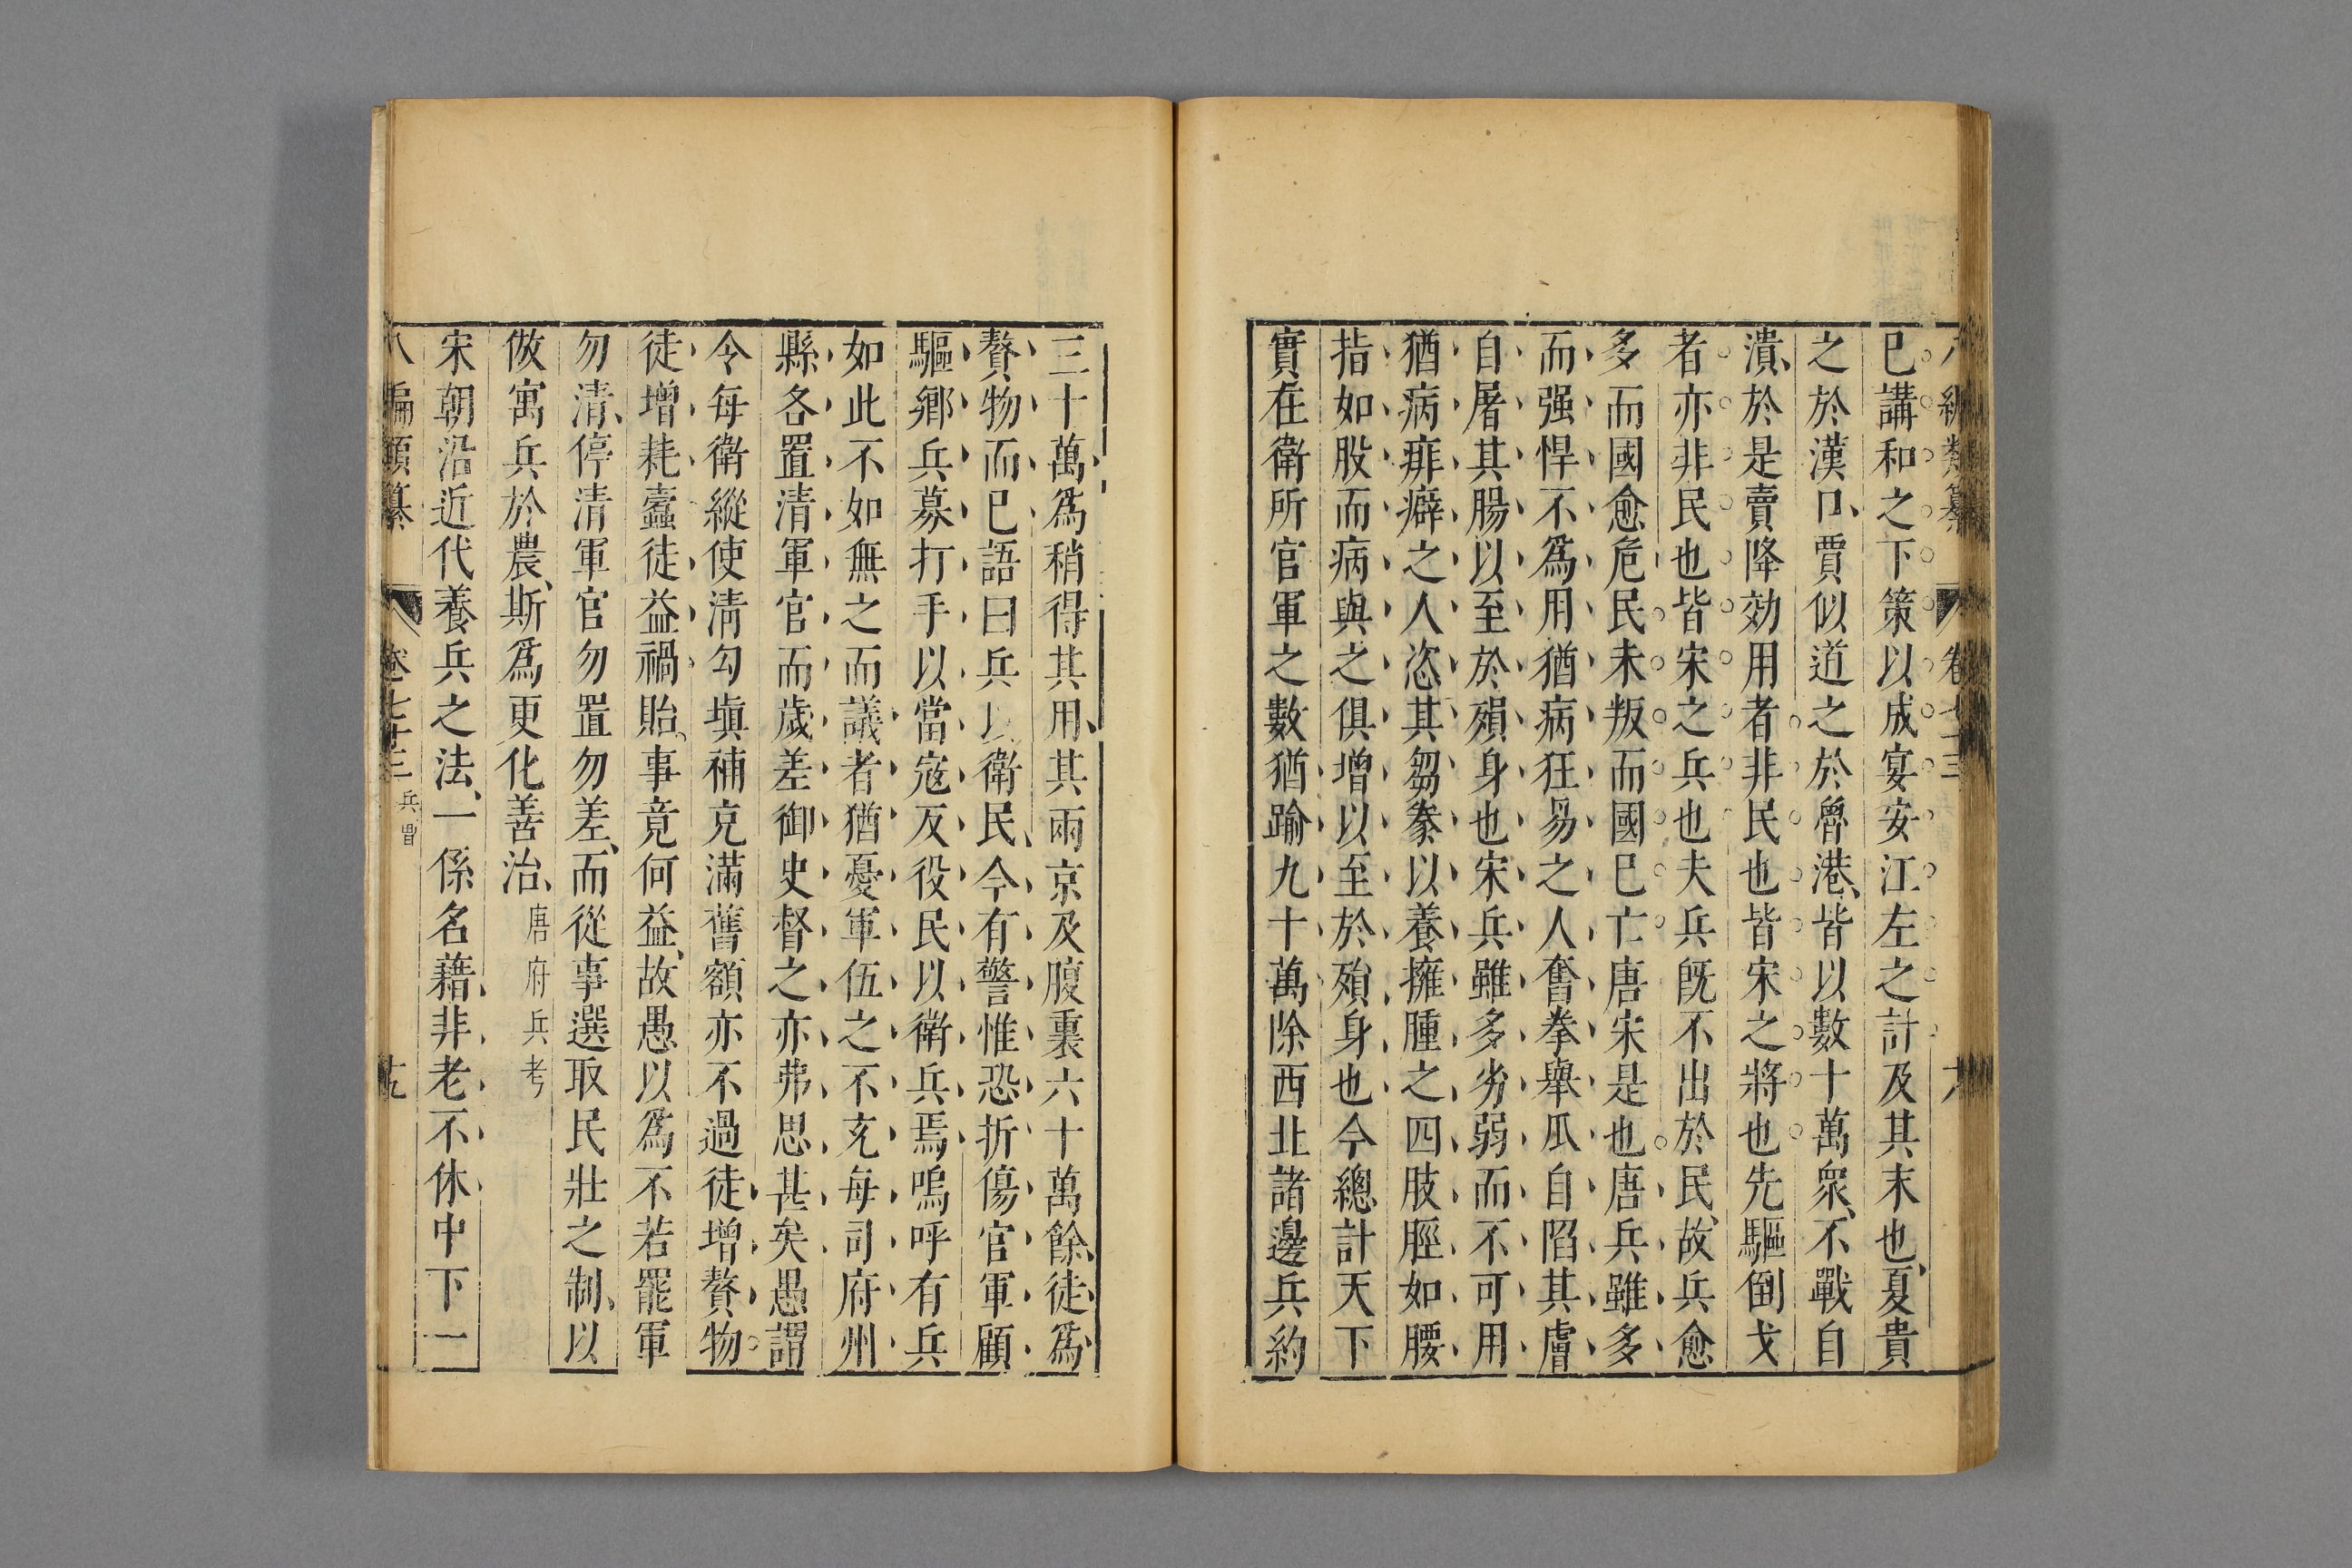 八編類纂 卷七十三
已講和之下策以成宴安江左之計及其末也夏貴
之於漢口賈似道之於魯港皆以數十萬衆不戰自
潰於是賣降効用者非民也皆宋之將也先驅倒戈
者亦非民也皆宋之兵也夫兵旣不出於民故兵愈
多而國愈危民未叛而國已亡唐宋是也唐兵雖多
而强悍不爲用猶病狂昜之人奮拳舉瓜自陷其膚
自屠其腸以至於殞身也宋兵雖多劣弱而不可用
猶病痱癖之人恣其芻豢以養擁腫之四肢脛如腰
指如股而病與之俱增以至於殞身也今總計天下
實在衛所官軍之數猶踰九十萬除西北諸邊兵約
三十萬爲稍得其用其兩京及腹裏六十萬餘徒爲
贅物而已語曰兵以衛民今有警惟恐折傷官軍顧
驅鄉兵募打手以當寇反役民以衛兵焉嗚呼有兵
如此不如無之而議者猶憂軍伍之不充每司府州
縣各置清軍官而歲差御史督之亦弗思甚矣愚謂
今每衛縱使清勾塡補充滿舊額亦不過徒增贅物
徒增耗蠹徒益禍貽事竟何益故愚以爲不若罷軍
勿清停清軍官勿置勿差而從事選取民壯之制以
倣寓兵於農斯爲更化善治 唐府兵考
宋朝沿近代養兵之法一係名藉非老不休中下一
八編類纂 卷七十三 兵